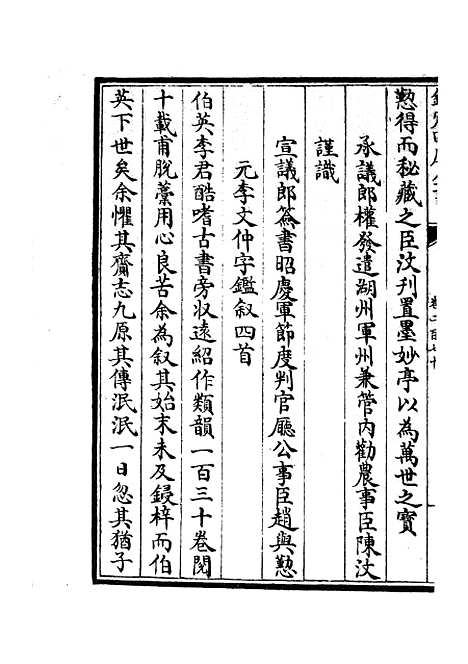 欽定四庫全書
卷二百七十
懃得而秘藏之臣汶刋置墨妙亭以為萬世之寳
承議郎權發遣湖州軍州兼管内勸農事臣陳汶
謹識
宣議郎簽書昭慶軍節度判官廳公事臣趙與懃
元李文仲字鑑叙四首
伯英李君酷嗜古書旁収逺紹作類韻一百三十卷閱
十載甫脫藁用心良苦余為叙其始末未及鋟梓而伯
英下世矣余懼其齎志九原其傳泯泯一日忽其猶子